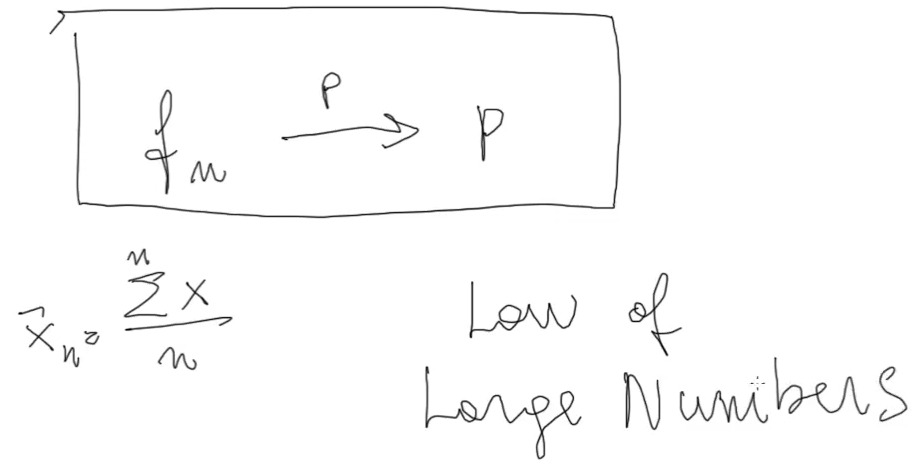 f_n \xrightarrow{P} p
\bar{x}_n = \frac{\sum^{n} x}{n}
Law of
Large Numbers